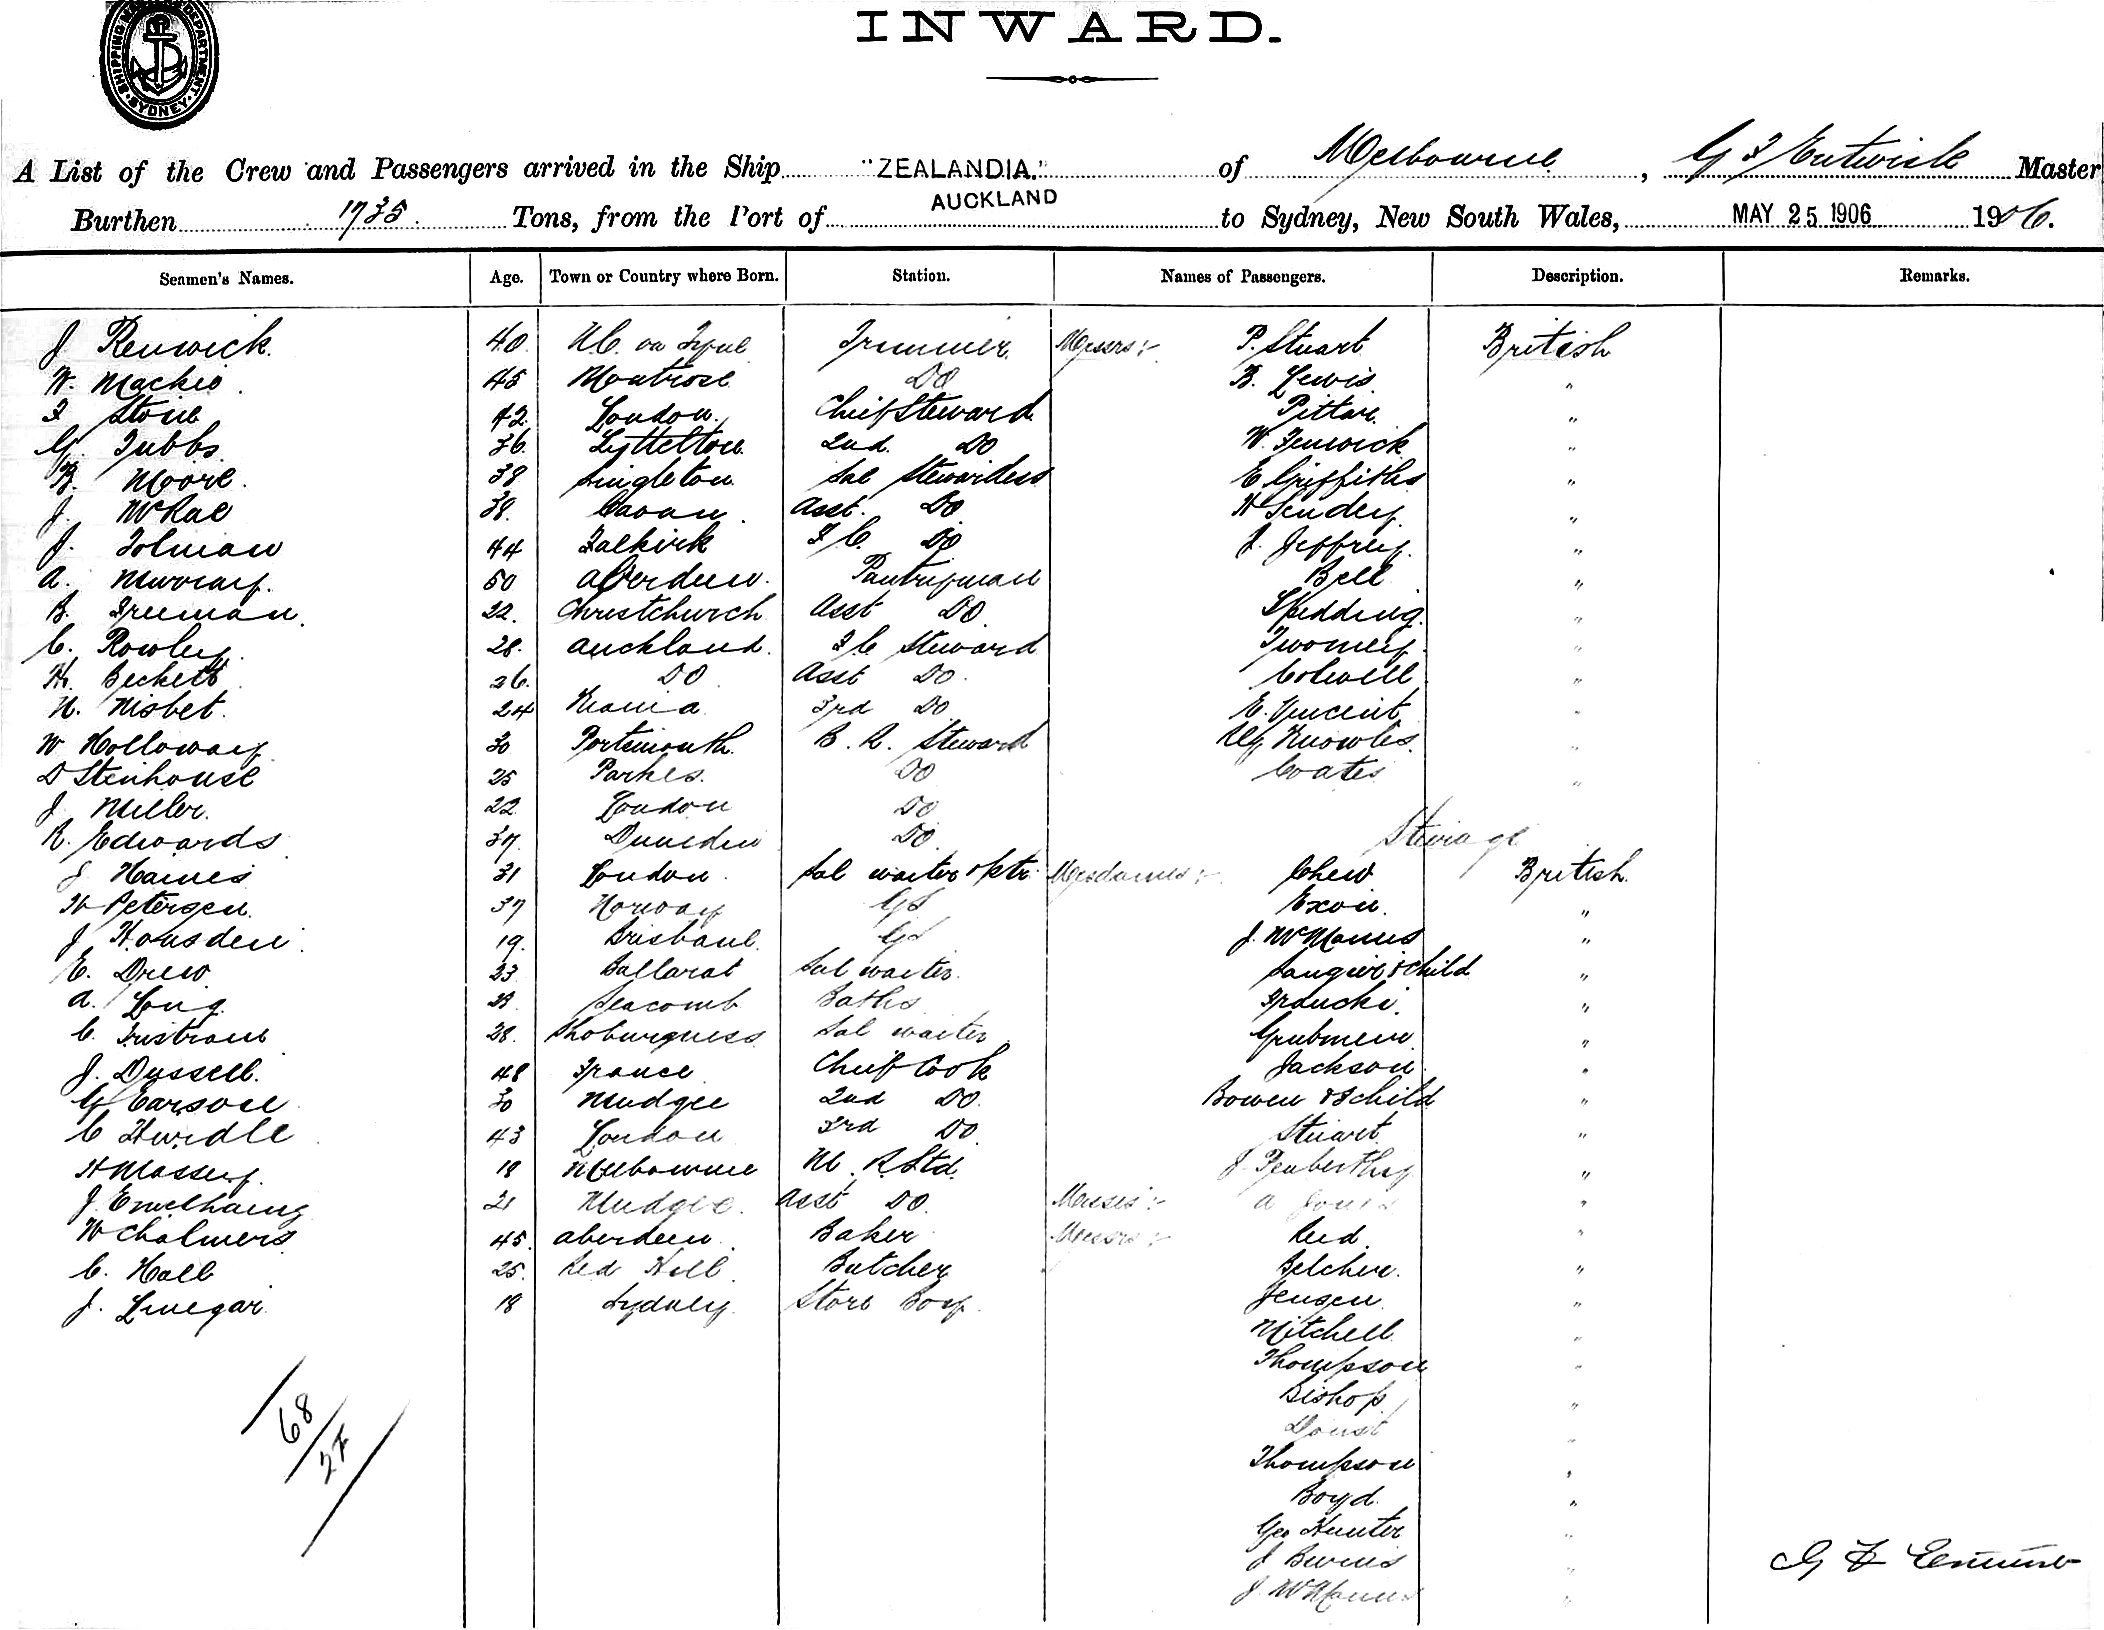 SHIPPING MASTER'S DEPARTMENT. SYDNEY
INWARD.
A List of the Crew and Passengers arrived in the Ship "ZEALANDIA." of Melbourne, G F Entwisle Master
Burthen 1735. Tons, from the Port of AUCKLAND to Sydney, New South Wales, MAY 25 1906 1906.
Seamen's Names. Age. Town or Country where Born. Station. Names of Passengers. Description. Remarks.
J Renwick. 40. N.C. on Tyne Trimmer. Messrs:- P. Stuart British
W. Mackie 45 Montrose Do B. Lewis "
F Stone 42 London. Chief Steward Pittar "
G. Tubbs 36. Lyttelton. 2nd. Do W. Fenwick "
B. Moore. 38 Singleton Sal Stewardess E Griffiths "
J. McRae 38. Cavan. Asst. Do H Sendey. "
J. Tolman 44 Falkirk F.C. Do J. Jeffrey. "
A. Murray. 50 Aberdeen. Pantryman Bell "
B. Freeman. 22. Christchurch Asst Do Spedding. "
C. Rowley. 28. Auckland. F C Steward Twomey "
H. Beckett 26. Do Asst Do. Colwell "
N. Nisbet. 24 Kiama 3rd Do E. Vincent "
W Holloway 30 Portsmouth. B. R. Steward Knowles. "
D Stenhouse 25 Parkes. Do Coates "
J Miller. 22 London Do
R. Edwards 37. Dunedin Do Steerage
J Haines 31 London. Sal waiter & ptr. Mesdames:- Chew British.
H Petersen. 37 Norway GS Exon. "
J Housden. 19. Brisbane. GS J. McManus "
E. Drew 23 Ballarat Sal waiter. Sanguie & child "
A. Long. Seacomb Baths "
C. Tristram 28. Shoburyness Sal waiter "
J. Dussell. 48 France Chief Cook Jackson "
G Carson 30 Mudgee 2nd Do. Bowen & child "
C Hurdle 43 London 3rd Do. Stuart "
H Massey. 18 Melbourne M. R Std. J Penberthy "
J 21 Mudgee. Asst Do. Misses:- A Jones "
W Chalmers 45. Aberdeen. Baker Messrs:- Reid "
C. Hall 25. Red Hill. Butcher Belcher. "
J. Linegar 18 Sydney. Store Boy. Jensen. "
Mitchell "
Thompson "
Bishop "
"
Thompson "
Boyd. "
Geo Hunter "
J Burns "
J. McManus "
68/27
G F Entwisle